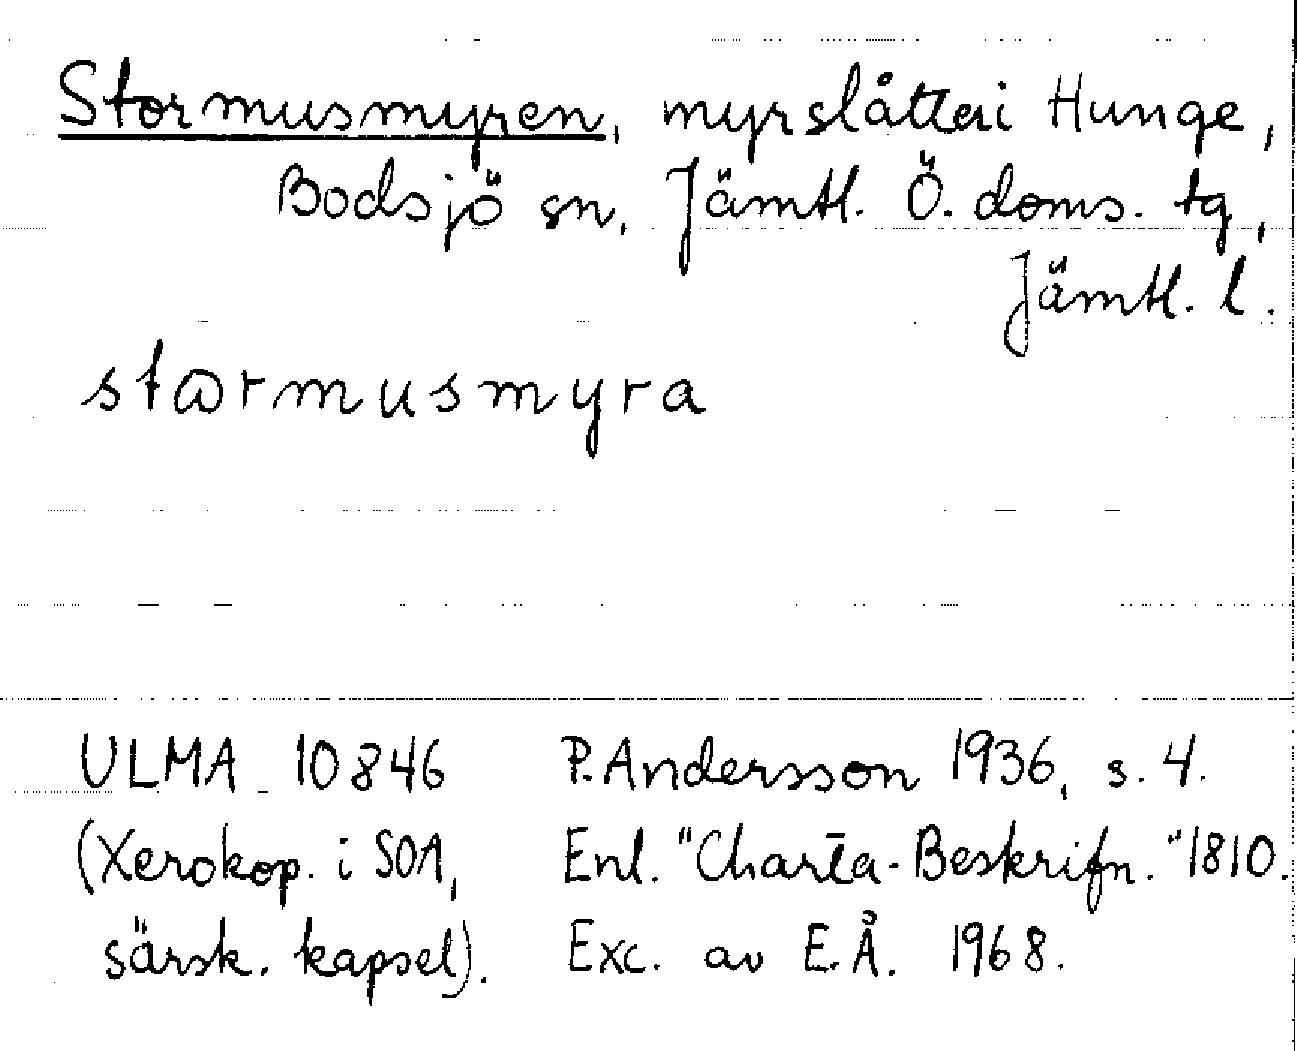 Stormusmyren, myrslåtter i Hunge,
Bodsjö sn, Jämtl. Ö. doms. tg,
Jämtl. l.
stωrmusmyra
ULMA 10846 P. Andersson 1936, s. 4.
(Xerokop. i SOA, Enl. "Charta-Beskrifn." 1810.
särsk. kapsel). Exc. av E.Å. 1968.